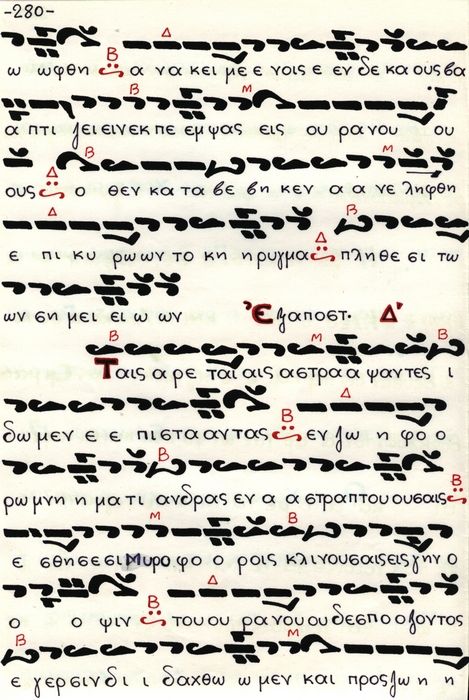 -280-
ω ωφθη α να κει με ε νοις ε εν δε κα ους βα
α πτι ζει ειν εκ πε εμ ψας εις ου ρα νου ου
ους ο θεν κα τα βε βη κεν α α νε ληφθη
ε πι κυ ρω ων το κη ηρυγμα πληθε ει τω
ων ση μει ει ω ων Ἐξαποστ. Δ'
Ταις α ρε ταί αις αστρα α ψαντες ι
δω μεν ε ε πιστα αντας εν ζω η φο ο
ρω μνη η μα τι ανδρας εν α α στραπτου ουσαις
ε εσθησεσι Μυροφο ο ροις κλινουσαις εις γην ο
ο ο ψιν του ου ρα νου ου δεσπο οζοντος
ε γερσιν δι ι δαχθω ω μεν και προς ζω η η